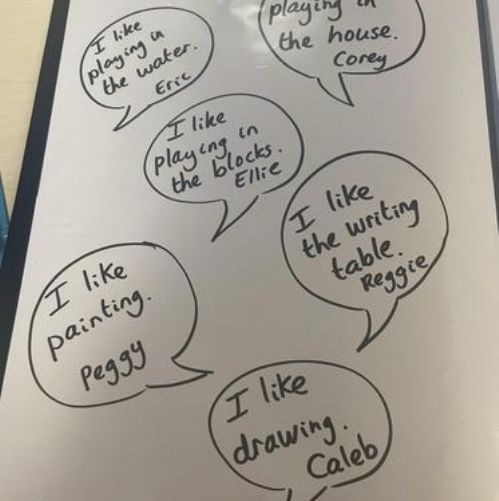 I like
playing in
the water.
Eric
playing in
the house.
Corey
I like
playing in
the blocks.
Ellie
I like
the writing
table.
Reggie
I like
painting.
Peggy
I like
drawing.
Caleb